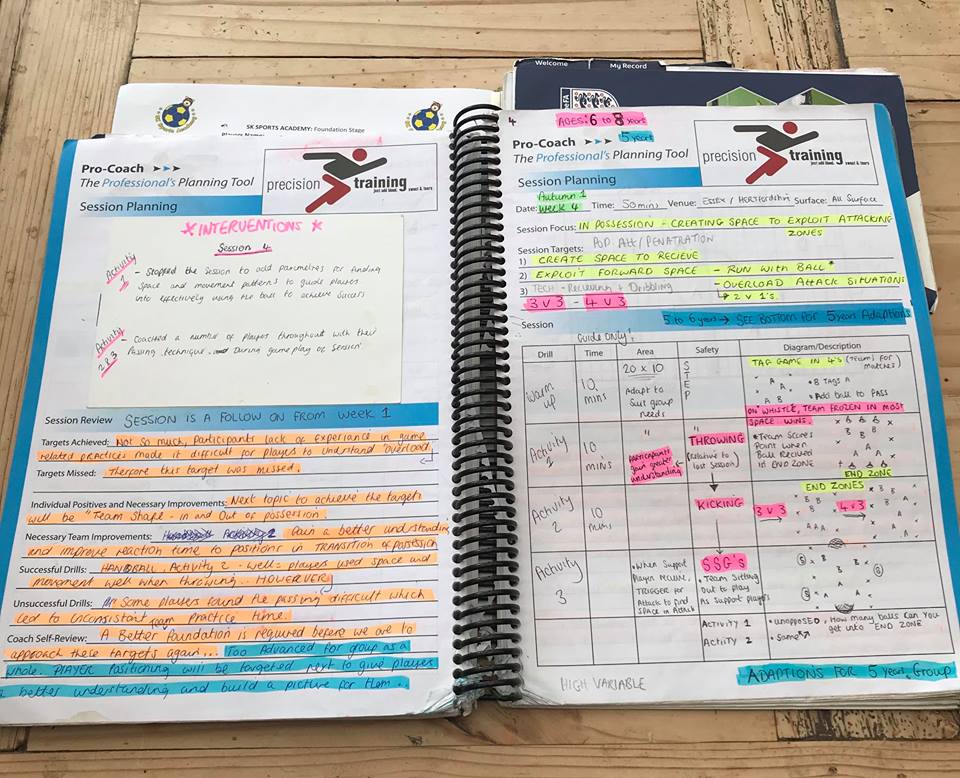 Welcome
My Record
SK SPORTS ACADEMY: Foundation Stage
Pro-Coach
The Professional's Planning Tool
Session Planning
precision
training
just add blood, sweat & tears
* INTERVENTIONS *
Session 4
Activity
1
- Stopped the Session to add parametres for finding
Space and movement patterns to guide players
into effectively using the ball to achieve success
Activity
2&3
- Coached a number of players throughout with their
Passing technique... During game play of Session
Session Review SESSION IS A FOLLOW ON FROM WEEK 1
Targets Achieved: Not so much, Participants lack of experience in game
related practices made it difficult for players to understand "overload"
Targets Missed: Therfore this target was missed.
Individual Positives and Necessary Improvements: Next topic to achieve the target
will be "Team Shape - in and Out of possesion
Necessary Team Improvements: Gain a better understanding
and improve reaction time to positions in TRANSITION of POSSESSION
Successful Drills: HANDBALL. Activity 2 - Well - players used space and
movement well when throwing.. HOWEVER
Unsuccessful Drills: Some players found the passing difficult which
led to inconsistant team practice time.
Coach Self-Review: A Better Foundation is required before we are to
approach these targets again... Too Advanced for group as a
whole. PLAYER Positioning will be targeted next to give players
a better understanding and build a picture for them..
4
AGES: 6 to 8 years
5 years
Pro-Coach
The Professional's Planning Tool
Session Planning
precision
training
just add blood, sweat & tears
Autumn 1
Date: Week 4 Time: 50 mins Venue: Essex / Hertfordshire Surface: All Surface
Session Focus: IN POSSESSION - CREATING SPACE TO EXPLOIT ATTACKING
ZONES
Session Targets: Att / PENATRATION
1) CREATE SPACE TO RECIEVE
2) EXPLOIT FORWARD SPACE - RUN WITH BALL*
3) TECH - Receiving + Dribbling - OVERLOAD ATTACK SITUATIONS
3 V 3 - 4 V 3 2 V 1's.
Session 5 to 6 years → SEE BOTTOM FOR 5 years Adaptions
Guide Only!
Drill Time Area Safety Diagram/Description
Warm up
10 mins
20 x 10
Adapt to Suit group needs
S T E P
TAG GAME IN 4's (Team) for matches)
* B TAGS A
* Add ball to PASS
ON WHISTLE, TEAM FROZEN IN MOST
SPACE WINS.
Activity 1
10 mins
"
PARTICIPANTS gain greater understanding
"
THROWING
(Relative to last Session)
*Team Scores Point when Ball Recived in END ZONE
END ZONE
Activity 2
10 mins
KICKING
END ZONES
3 v 3
4 v 3
Activity 3
*When Support Player RECIEVE, TRIGGER for Attack to find SPACE in Attack
SSG's
*Team Sitting Out to play As Support players
ACTIVITY 1
* unopposED, How many balls can you get into END ZONE
ACTIVITY 2
* Same
HIGH VARIABLE
ADAPTIONS FOR 5 years Group